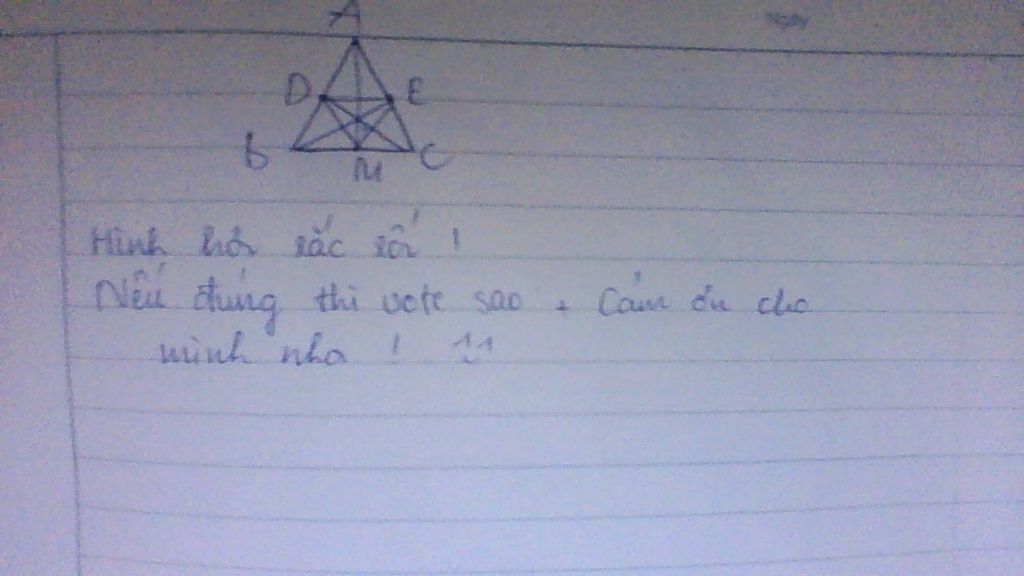 A
D E
B M C
Hình hơi rắc rối !
Nếu đúng thì vote sao + Cảm ơn cho
mình nha ! ^^